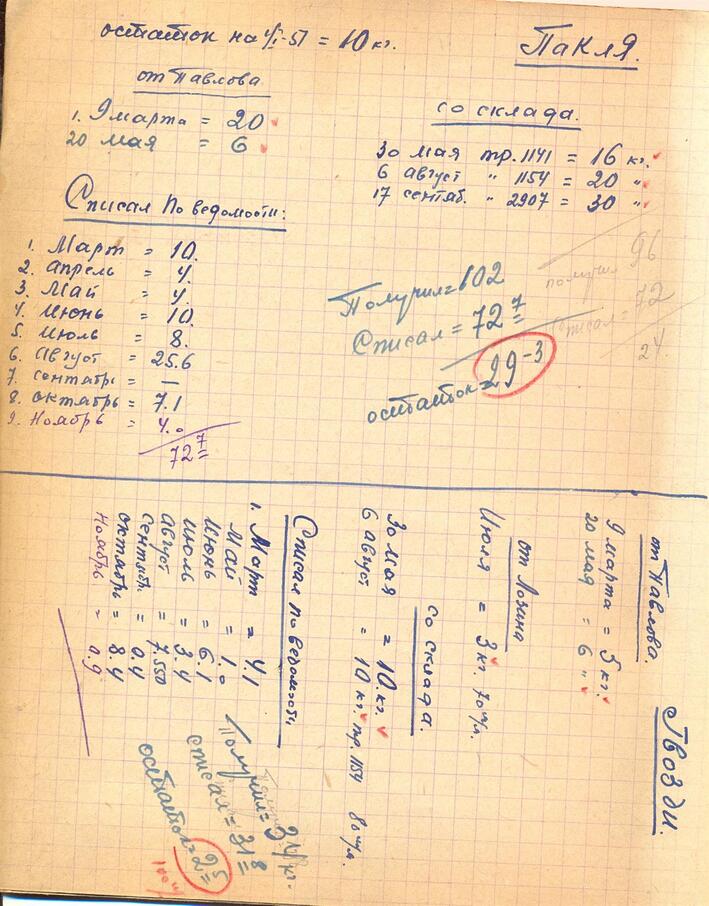 остаток на 1/I-51 = 10 кг.
Пакля.
от Павлова
1. 9 марта = 20
20 мая = 6
со склада.
30 мая тр. 1141 = 16 кг.
6 август " 1154 = 20 "
17 сентяб. " 2907 = 30 "
Списал по ведомости:
1. Март = 10.
2. апрель = 4.
3. Май = 4.
4. Июнь = 10.
5. Июль = 8.
6. Август = 25.6
7. сентабрь = —
8. октабрь = 7.1
9. Ноябрь = 4.0
72 7
Получил = 102
Списал = 72 7
остаток = 29-3
получил 96
списал = 72
24.
Гвозди.
от Павлова.
9 марта = 5 кг.
20 мая = 6 "
от Лозина
Июля = 3 кг. 70 ш/м.
со склада.
30 мая = 10. кг.
6 август = 10 кг. тр. 1154 80 ш/м.
Списал по ведомости
1. Март = 4.1
Май = 1.0
Июнь = 6.1
Июль = 3.4
август = 7.550
сентабрь = 0.4
октабрь = 8.4
Ноябрь = 0.9
Получил = 34 кг.
списал = 31 8
остаток = 2